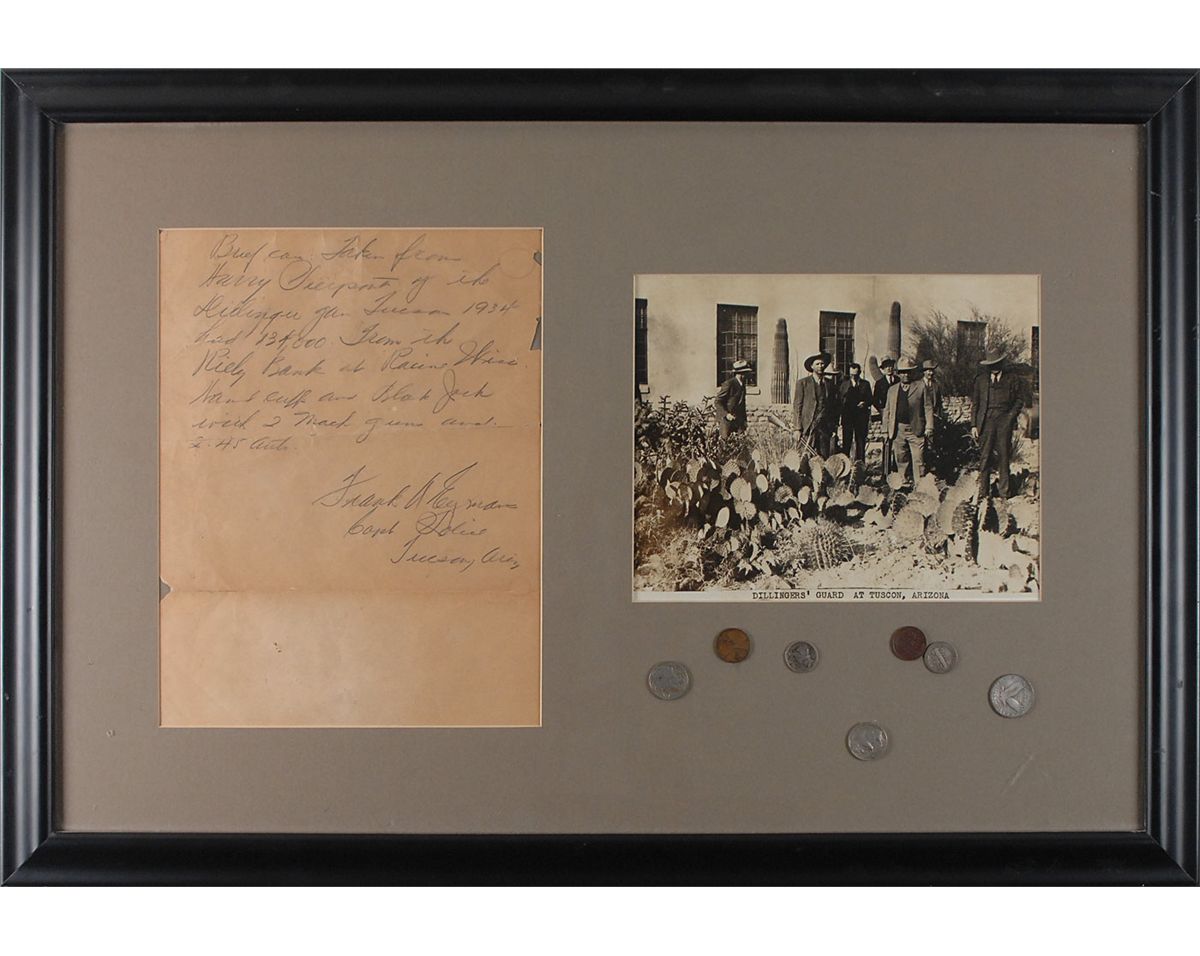 Brief case Taken from
Harry Pierpont of the
Dillinger gan Tucson 1934
had $34,000. From th
Bank at Racine Wisc.
Hand cuffs and Black Jack
with 2 Mach guns and
2-45 Auto.
Frank A Eyman
Capt Police
Tucson, Ariz
DILLINGERS' GUARD AT TUSCON, ARIZONA